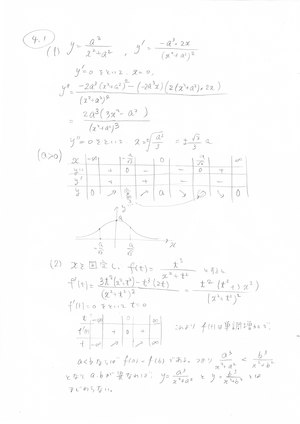 4.1
(1) y = a²/(x²+a²) , y' = -a³·2x/(x²+a²)²
y'=0 をとくと x=0,
y'' = -2a³(x²+a²)² - (-2a³x)(2(x²+a²)·2x)/(x²+a²)⁴
= 2a³(3x²-a²)/(x²+a²)³
y''=0 をとくと x=±√(a²/3) = ±√3/3 a
(a>0)
x -∞ 0 ∞
y' + 0 -
y 0 ↗ a ↘ 0
y
x
(2) xを固定し f(t) = t³/(x²+t²) とすると
f'(t) = 3t²(x²+t²) - t³(2t)/(x²+t²)² = t²(t²+3x²)/(x²+t²)²
f'(t)=0 をとくと t=0
t -∞ 0 ∞
f'(t) + 0 +
より f(t)は単調増加
a<bならば f(a)<f(b) である。つまり a³/(x²+a²) < b³/(x²+b²)
となり a,bが異なれば y=a³/(x²+a²) と y=b³/(x²+b²) は
まじわらない。